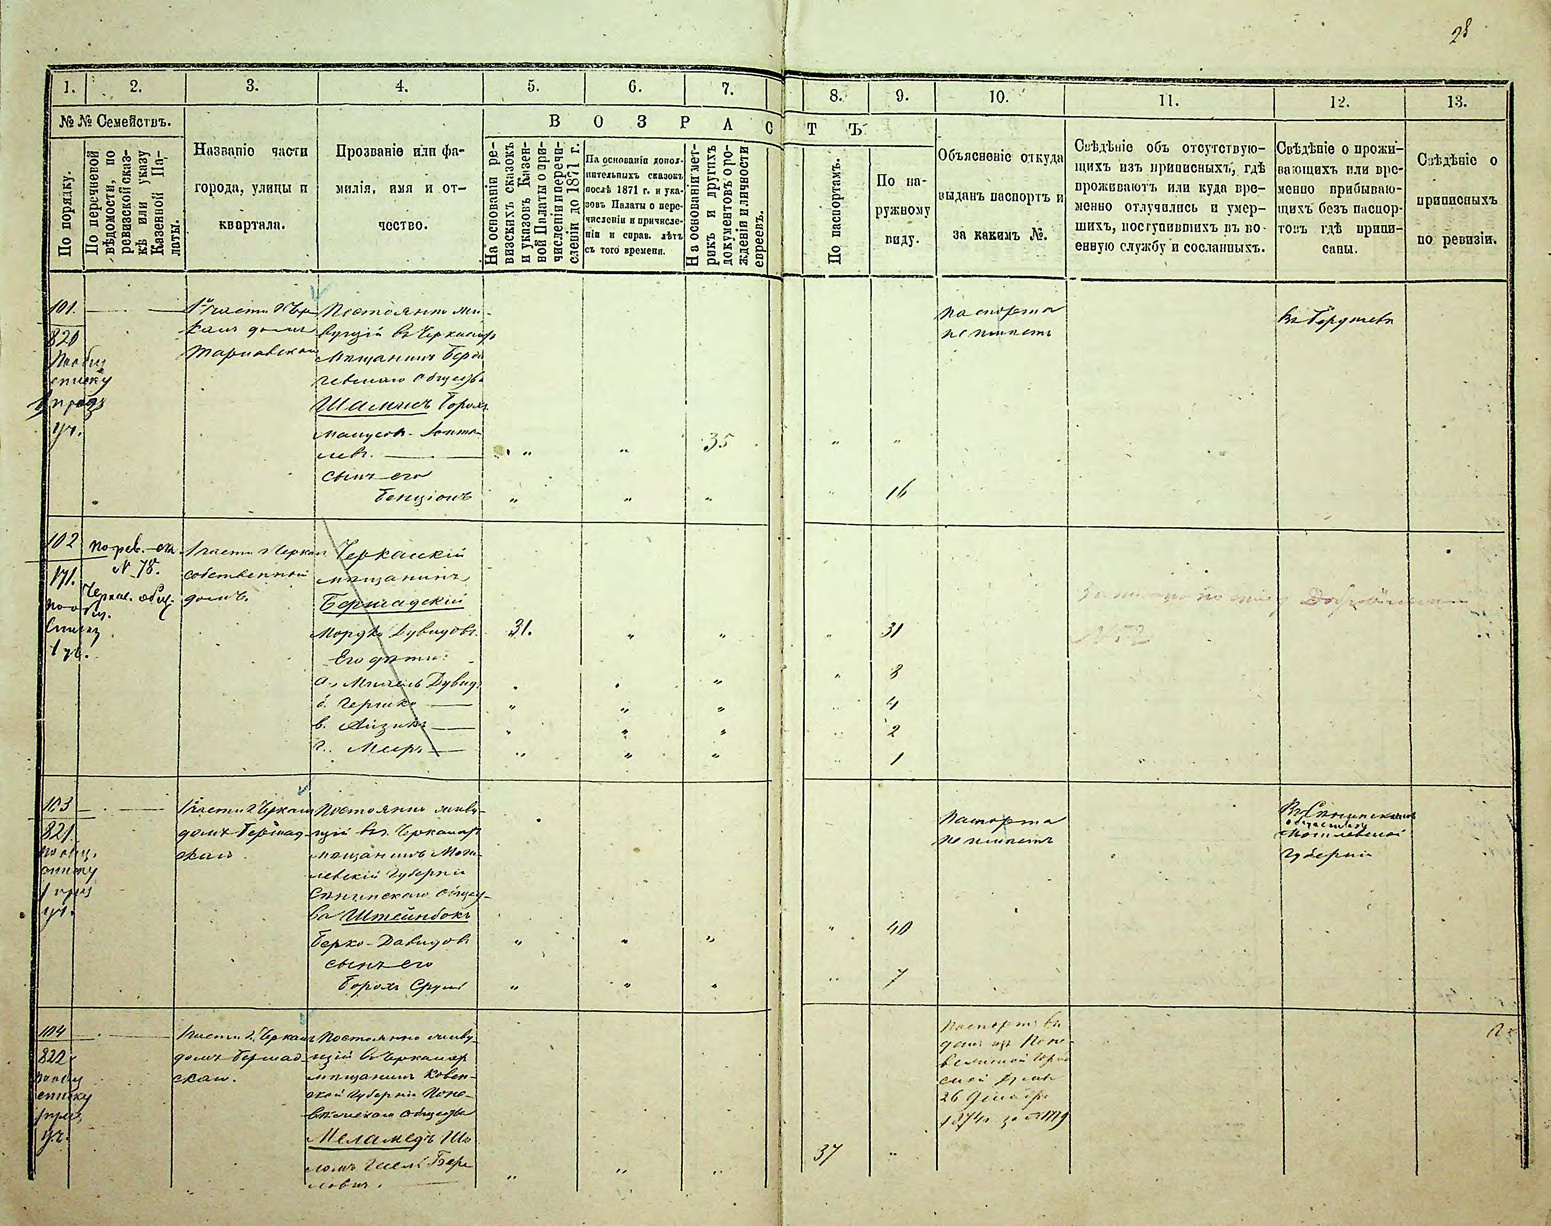 28
1. 2. 3. 4. 5. 6. 7. 8. 9. 10. 11. 12. 13.
№ № Семействъ.
В О З Р А С Т Ъ
По порядку.
По перечневой
вѣдомости, по
ревизской сказ-
кѣ или указу
Казенной Па-
латы.
Названіе части
города, улицы и
квартала.
Прозваніе или фа-
милія, имя и от-
чество.
На основаніи ре-
визскихъ сказокъ
и указовъ Казен-
ной Палаты о при-
численіи и перечи-
сленіи до 1871 г.
На основаніи допол-
нительныхъ сказокъ
послѣ 1871 г. и ука-
зовъ Палаты о пере-
численіи и причисле-
ніи и справ. лѣтъ
съ того времени.
На основаніи мет-
рикъ и другихъ
документовъ о ро-
жденіи и личности
евреевъ.
По паспортамъ.
По на-
ружному
виду.
Объясненіе откуда
выданъ паспортъ и
за какимъ №.
Свѣдѣніе объ отсутствую-
щихъ изъ приписныхъ, гдѣ
проживаютъ или куда вре-
менно отлучились и умер-
шихъ, поступившихъ въ во-
енную службу и сосланныхъ.
Свѣдѣніе о прожи-
вающихъ или вре-
менно прибываю-
щихъ безъ паспор-
товъ гдѣ припи-
саны.
Свѣдѣніе о
приписныхъ
по ревизіи.
101.
820
списку
уч.
1й части г. Чер
домъ
Тарнавской
Постоянно жи-
вущій въ Черкасахъ
мѣщанинъ Берди
чевскаго Общества
Шаминъ Борохъ
35
сынъ его
Бенціонъ
16
паспорта
не имѣетъ
Въ Бердичевѣ
102
171.
списку
1 уч.
по рев. ск
N 78.
Черкас. общ.
1 части г Черкас
собственный
домъ.
Черкаскій
мѣщанинъ
Бершадскій
Мордко Дувидовъ
31.
31
Его дѣти:
а. Михель Дувид.
8
б. Гершко
4
в. Айзикъ
2
г. Мееръ
1
N 52
103
821.
по общ.
списку
уч.
1 части г Черкас
домъ Бершад-
скаго
Постоянно живу-
щій въ Черкасахъ
мѣщанинъ Моги-
левской Губерніи
Сѣнинскаго общес-
ва Штейнбокъ
Берко-Давидовъ
40
сынъ его
Борохъ Срулъ
7
Паспорта
не имѣетъ
Въ Сѣнинскомъ
обществѣ
Могилевской
Губерніи
104
822
списку
уч.
1 части г. Черкас
домъ Бершад-
скаго.
Постоянно живу-
щій въ Черкасахъ
мѣщанинъ Ковен-
ской Губерніи Поне-
вѣжскаго общества
Меламедъ Шо
ломъ Бер
ловичъ.
37
Паспортъ вы
данъ изъ Поне-
26